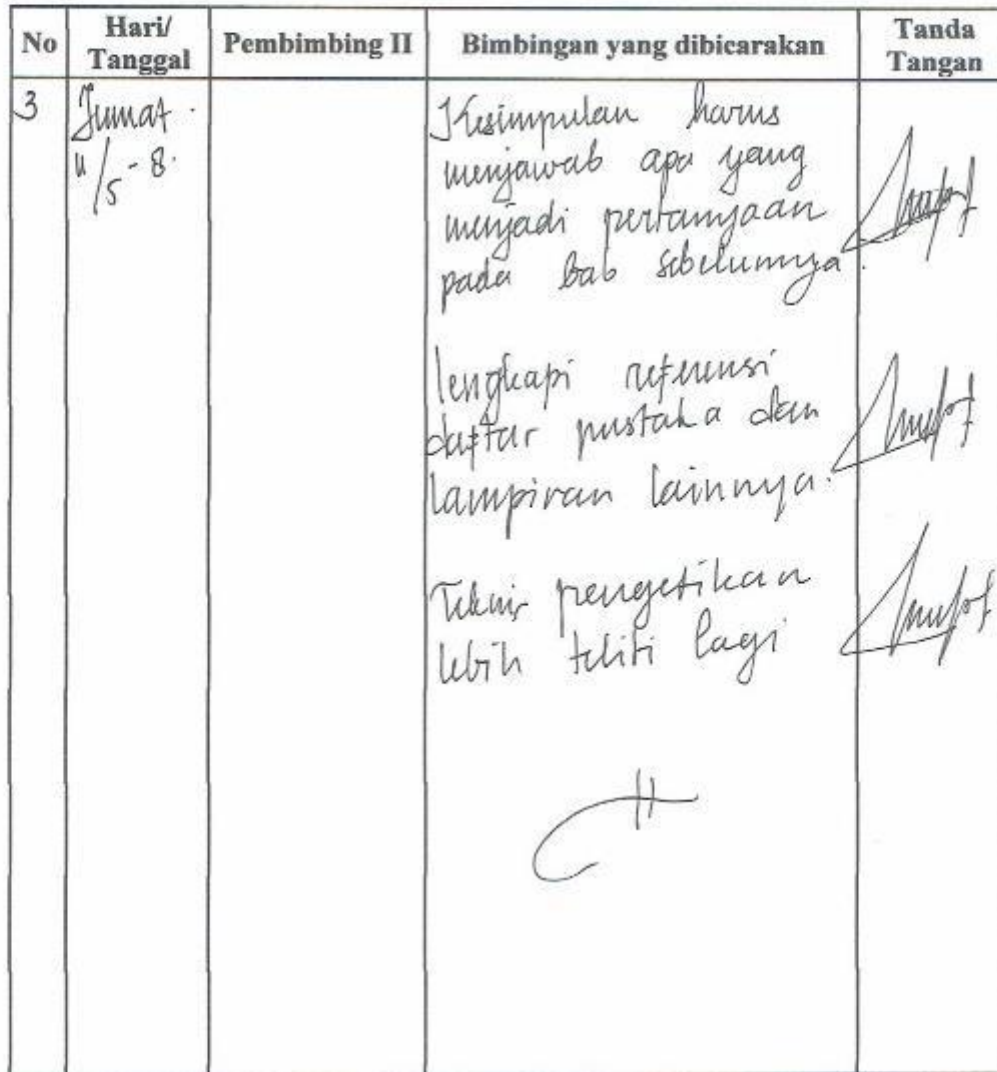 No Hari/ Tanggal Pembimbing II Bimbingan yang dibicarakan Tanda Tangan
3 Jumat.
11/5-8.
Kesimpulan harus
menjawab apa yang
menjadi pertanyaan
pada bab sebelumnya.
lengkapi referensi
daftar pustaka dan
lampiran lainnya.
Teknis pengetikan
lebih teliti lagi